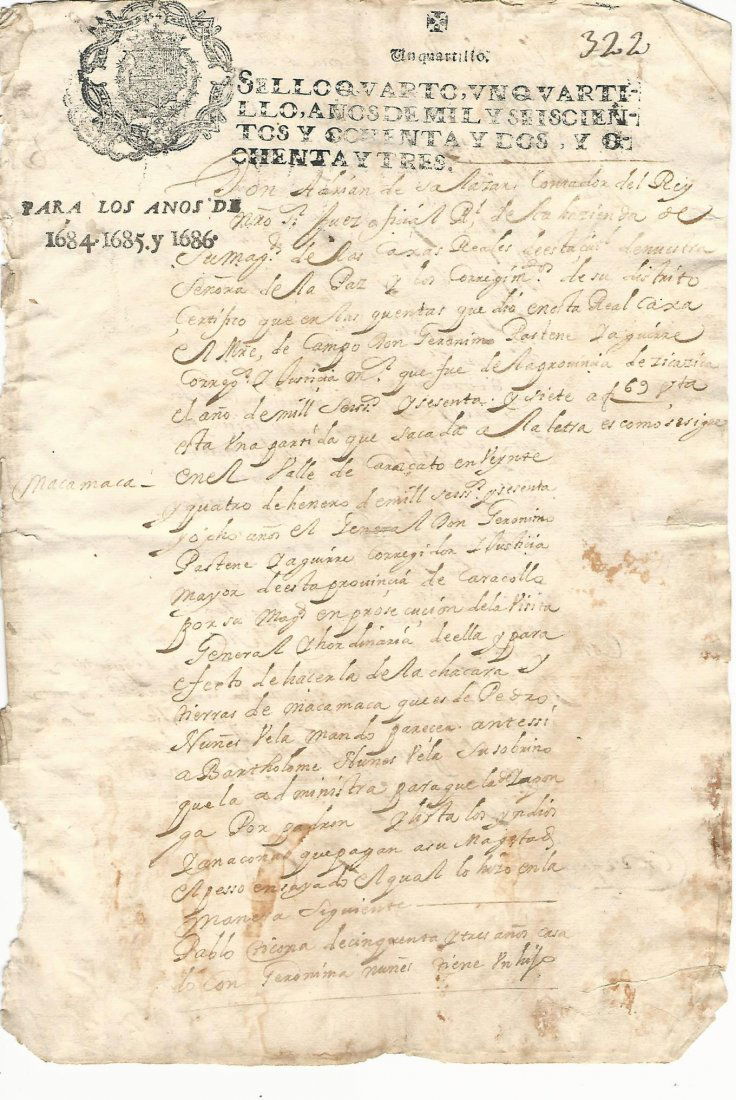 Un quartillo.
322
SELLO QVARTO, VN QVARTI-
LLO, AÑOS DE MIL Y SEISCIEN-
TOS Y OCHENTA Y DOS, Y O-
CHENTA Y TRES.
PARA LOS ANOS DE
1684. 1685. y 1686.
Don Adrian de Salazar Contador del Rey
nrō Sr. Juez oficial Rl. de la hazienda de
Su Magd. de las Caxas Reales de esta ciud. de nuestra
Señora de la Paz y los Corregimtos. de su distrito
Certifico que en las quentas que dió en esta Real Caxa
el Mre. de Campo Don Geronimo Pastene Yaguirre
Corregor. y Justicia mr. que fue de la provincia de zicazica
el año de mill Seiss. y sesenta y siete a f 69 esta
esta Una partida que sacada a la letra es como se sigue
Macamaca
en el Valle de Caracato en Veynte
y quatro de henero de mill seiss. y sesenta
y ocho años el General Don Geronimo
Pastene Yaguirre Corregidor y Justicia
mayor de esta provincia de Caracollo
por su Magd. en prosecucion de la Visita
General Yhordinaria de ella y para
efecto de hacerla de la chacara y
tierras de macamaca que es de Pedro
Nuñes Vela mando parecer ante ssi
a Bartholome Nunes Vela su sobrino
que la administra para que la
ga Por padron Ylista los yndios
Yanaconas que pagan a su Magestad
el pesso ensayado el qual lo hizo en la
Manera Siguiente
Pablo ticona de cinquenta y tres años casa
do con Geronima nuñes tiene Un hijo